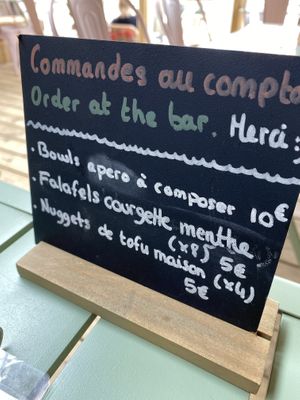 Commandes au compto
Order at the bar. Merci :
. Bowls apero à composer 10€
. Falafels courgette menthe
(x8) 5€
. Nuggets de tofu maison (x4)
5€